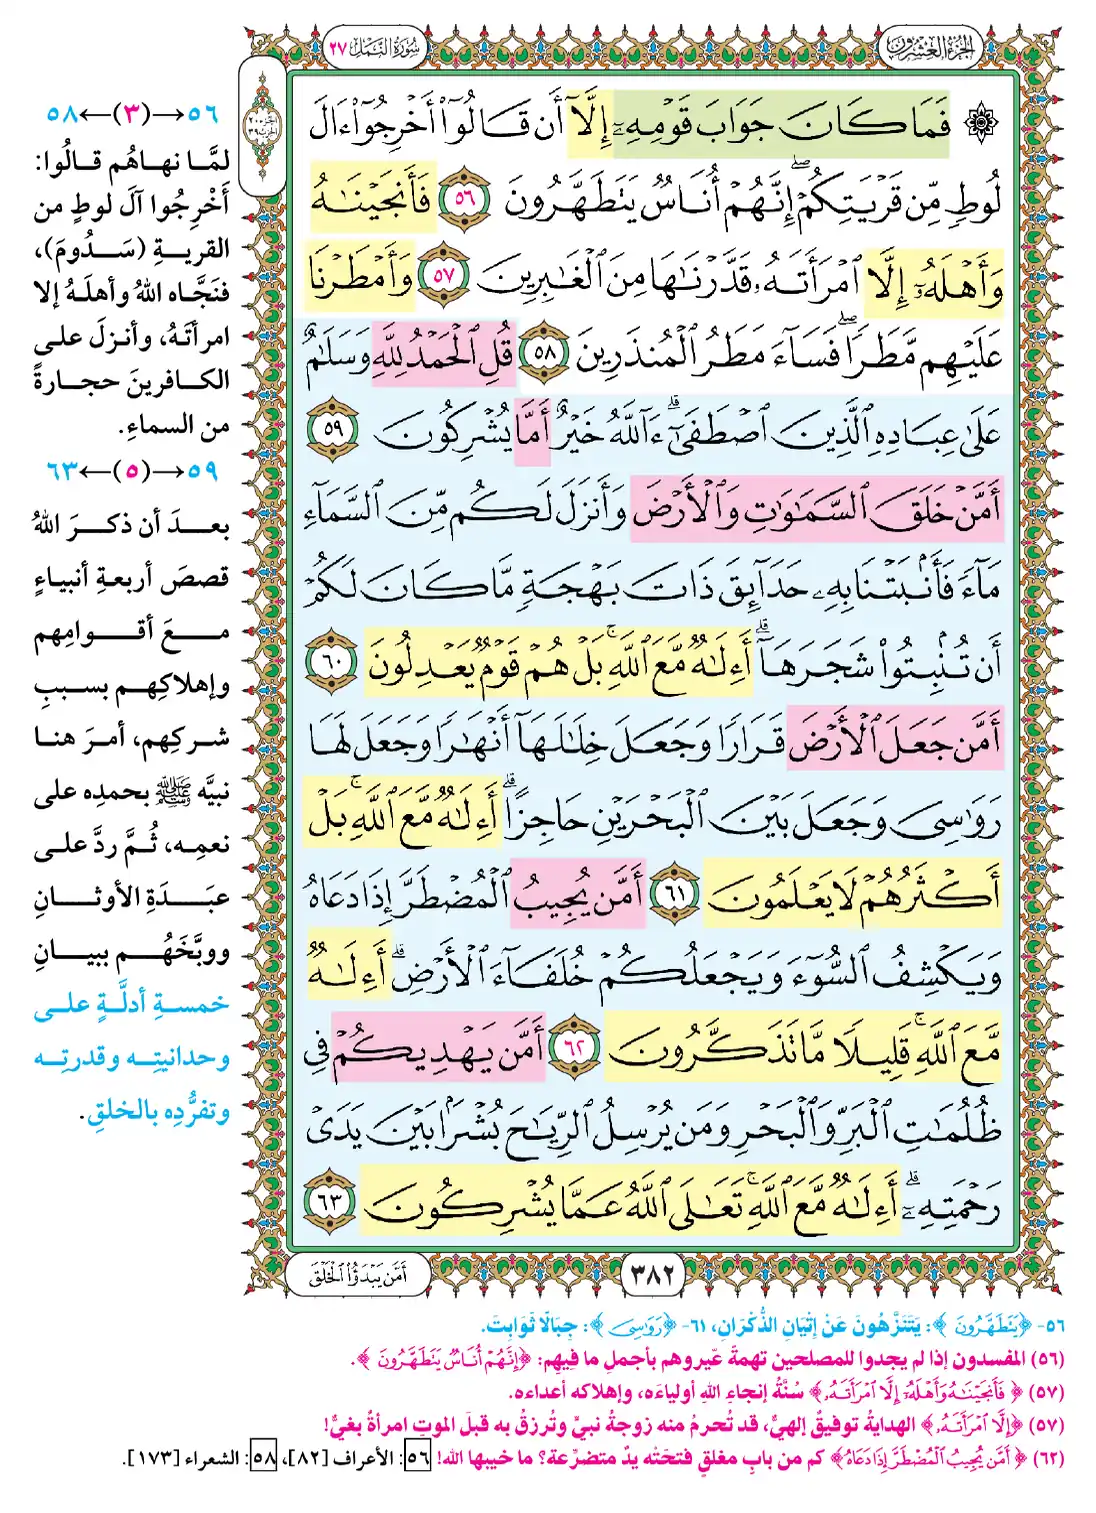 الجزء العشرون
سورة النمل ٢٧
۞ فَمَا كَانَ جَوَابَ قَوْمِهِۦٓ إِلَّآ أَن قَالُوٓا۟ أَخْرِجُوٓا۟ ءَالَ
لُوطٍ مِّن قَرْيَتِكُمْ ۖ إِنَّهُمْ أُنَاسٌ يَتَطَهَّرُونَ ٥٦ فَأَنجَيْنَٰهُ
وَأَهْلَهُۥٓ إِلَّا ٱمْرَأَتَهُۥ قَدَّرْنَٰهَا مِنَ ٱلْغَٰبِرِينَ ٥٧ وَأَمْطَرْنَا
عَلَيْهِم مَّطَرًا ۖ فَسَآءَ مَطَرُ ٱلْمُنذَرِينَ ٥٨ قُلِ ٱلْحَمْدُ لِلَّهِ وَسَلَٰمٌ
عَلَىٰ عِبَادِهِ ٱلَّذِينَ ٱصْطَفَىٰٓ ۗ ءَآللَّهُ خَيْرٌ أَمَّا يُشْرِكُونَ ٥٩
أَمَّنْ خَلَقَ ٱلسَّمَٰوَٰتِ وَٱلْأَرْضَ وَأَنزَلَ لَكُم مِّنَ ٱلسَّمَآءِ
مَآءً فَأَنۢبَتْنَا بِهِۦ حَدَآئِقَ ذَاتَ بَهْجَةٍ مَّا كَانَ لَكُمْ
أَن تُنۢبِتُوا۟ شَجَرَهَآ ۗ أَءِلَٰهٌ مَّعَ ٱللَّهِ ۚ بَلْ هُمْ قَوْمٌ يَعْدِلُونَ ٦٠
أَمَّن جَعَلَ ٱلْأَرْضَ قَرَارًا وَجَعَلَ خِلَٰلَهَآ أَنْهَٰرًا وَجَعَلَ لَهَا
رَوَٰسِىَ وَجَعَلَ بَيْنَ ٱلْبَحْرَيْنِ حَاجِزًا ۗ أَءِلَٰهٌ مَّعَ ٱللَّهِ ۚ بَلْ
أَكْثَرُهُمْ لَا يَعْلَمُونَ ٦١ أَمَّن يُجِيبُ ٱلْمُضْطَرَّ إِذَا دَعَاهُ
وَيَكْشِفُ ٱلسُّوٓءَ وَيَجْعَلُكُمْ خُلَفَآءَ ٱلْأَرْضِ ۗ أَءِلَٰهٌ
مَّعَ ٱللَّهِ ۚ قَلِيلًا مَّا تَذَكَّرُونَ ٦٢ أَمَّن يَهْدِيكُمْ فِى
ظُلُمَٰتِ ٱلْبَرِّ وَٱلْبَحْرِ وَمَن يُرْسِلُ ٱلرِّيَٰحَ بُشْرًۢا بَيْنَ يَدَىْ
رَحْمَتِهِۦٓ ۗ أَءِلَٰهٌ مَّعَ ٱللَّهِ ۚ تَعَٰلَى ٱللَّهُ عَمَّا يُشْرِكُونَ ٦٣
٣٨٢
أَمَّن يَبْدَؤُا۟ ٱلْخَلْقَ
٥٦→(٣)←٥٨
لمَّا نهاهُم قالُوا:
أَخْرِجُوا آلَ لوطٍ من
القريةِ (سَدُومَ)،
فنَجَّاه اللهُ وأهلَهُ إلا
امرأتَهُ، وأنزلَ على
الكافرينَ حجارةً
من السماءِ.
٥٩→(٥)←٦٣
بعدَ أن ذكرَ اللهُ
قصصَ أربعةِ أنبياءٍ
معَ أقوامِهم
وإهلاكِهم بسببِ
شركِهم، أمرَ هنا
نبيَّه ﷺ بحمدِه على
نعمِه، ثُمَّ ردَّ على
عبَدَةِ الأوثانِ
ووبَّخَهُم ببيانِ
خمسةِ أدلَّةٍ على
وحدانيتِه وقدرتِه
وتفرُّدِه بالخلقِ.
٥٦- ﴿يَتَطَهَّرُونَ﴾: يَتَنَزَّهُونَ عَنْ إِتْيَانِ الذُّكْرَانِ، ٦١- ﴿رَوَٰسِىَ﴾: جِبَالًا ثَوَابِتَ.
(٥٦) المفسدون إذا لم يجدوا للمصلحين تهمةً عيّروهم بأجملِ ما فيهِم: ﴿إِنَّهُمْ أُنَاسٌ يَتَطَهَّرُونَ﴾.
(٥٧) ﴿فَأَنجَيْنَٰهُ وَأَهْلَهُۥٓ إِلَّا ٱمْرَأَتَهُۥ﴾ سُنَّةُ إنجاءِ اللهِ أولياءَه، وإهلاكه أعداءه.
(٥٧) ﴿إِلَّا ٱمْرَأَتَهُۥ﴾ الهدايةُ توفيقٌ إلهيٌّ، قد تُحرمُ منه زوجةُ نبيٍّ وتُرزقُ به قبلَ الموتِ امرأةٌ بغيٌّ!
(٦٢) ﴿أَمَّن يُجِيبُ ٱلْمُضْطَرَّ إِذَا دَعَاهُ﴾ كم من بابٍ مغلقٍ فتحَتْه يدٌ متضرِّعة؟ ما خيبها الله! ٥٦: الأعراف [٨٢]، ٥٨: الشعراء [١٧٣].